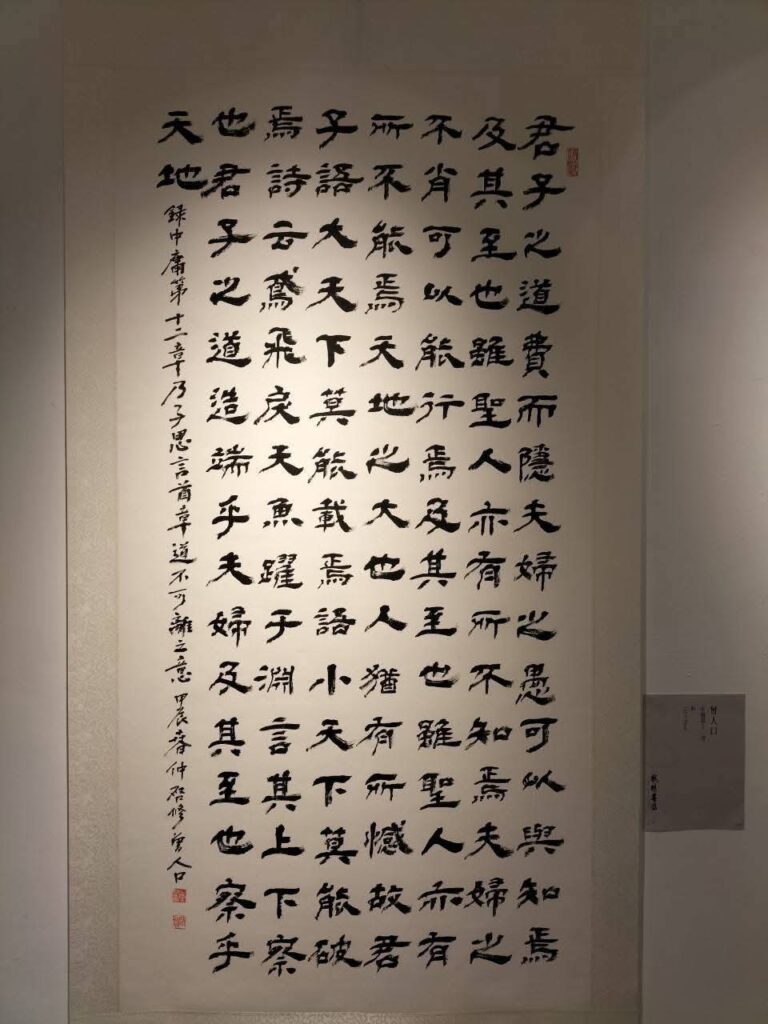 君子之道費而隱夫婦之愚可以與知焉
及其至也雖聖人亦有所不知焉夫婦之
不肖可以能行焉及其至也雖聖人亦有
所不能焉天地之大也人猶有所憾故君
子語大天下莫能載焉語小天下莫能破
焉詩云鳶飛戾天魚躍于淵言其上下察
也君子之道造端乎夫婦及其至也察乎
天地
録中庸第十二章乃子思言首章道不可離之意甲辰春仲啓修曾人口
曾人口